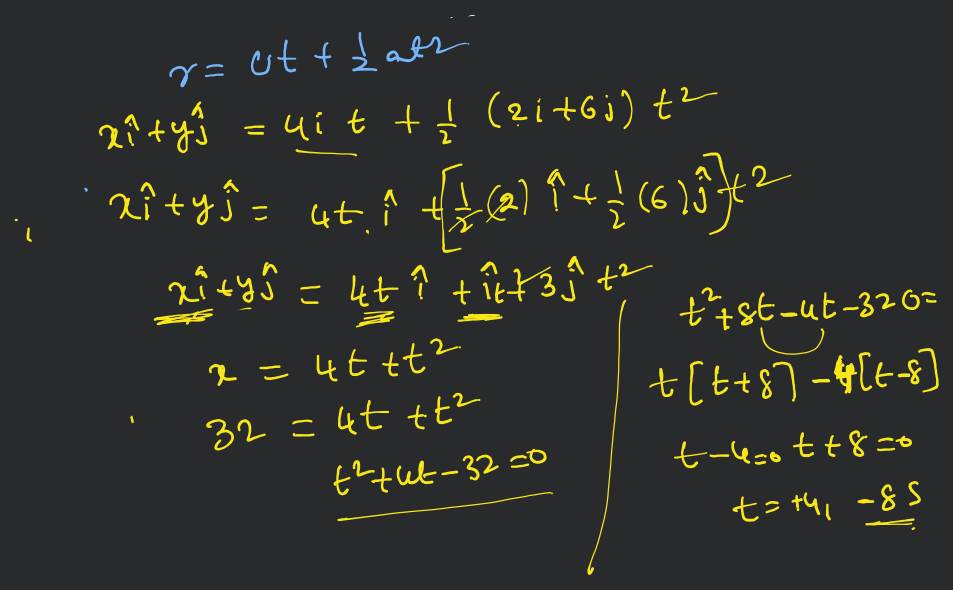 r = ut + 1/2 at2
xî + yĵ = 4i t + 1/2 (2i+6j) t²
xî + yĵ = 4t. î + [1/2 (2) î + 1/2 (6) ĵ] t²
xî + yĵ = 4t î + ît² + 3ĵ t²
x = 4t + t²
32 = 4t + t²
t² + 4t - 32 = 0
t² + 8t - 4t - 32 0=
t [t+8] - 4 [t-8]
t-4=0 t+8=0
t = +4, -8 s